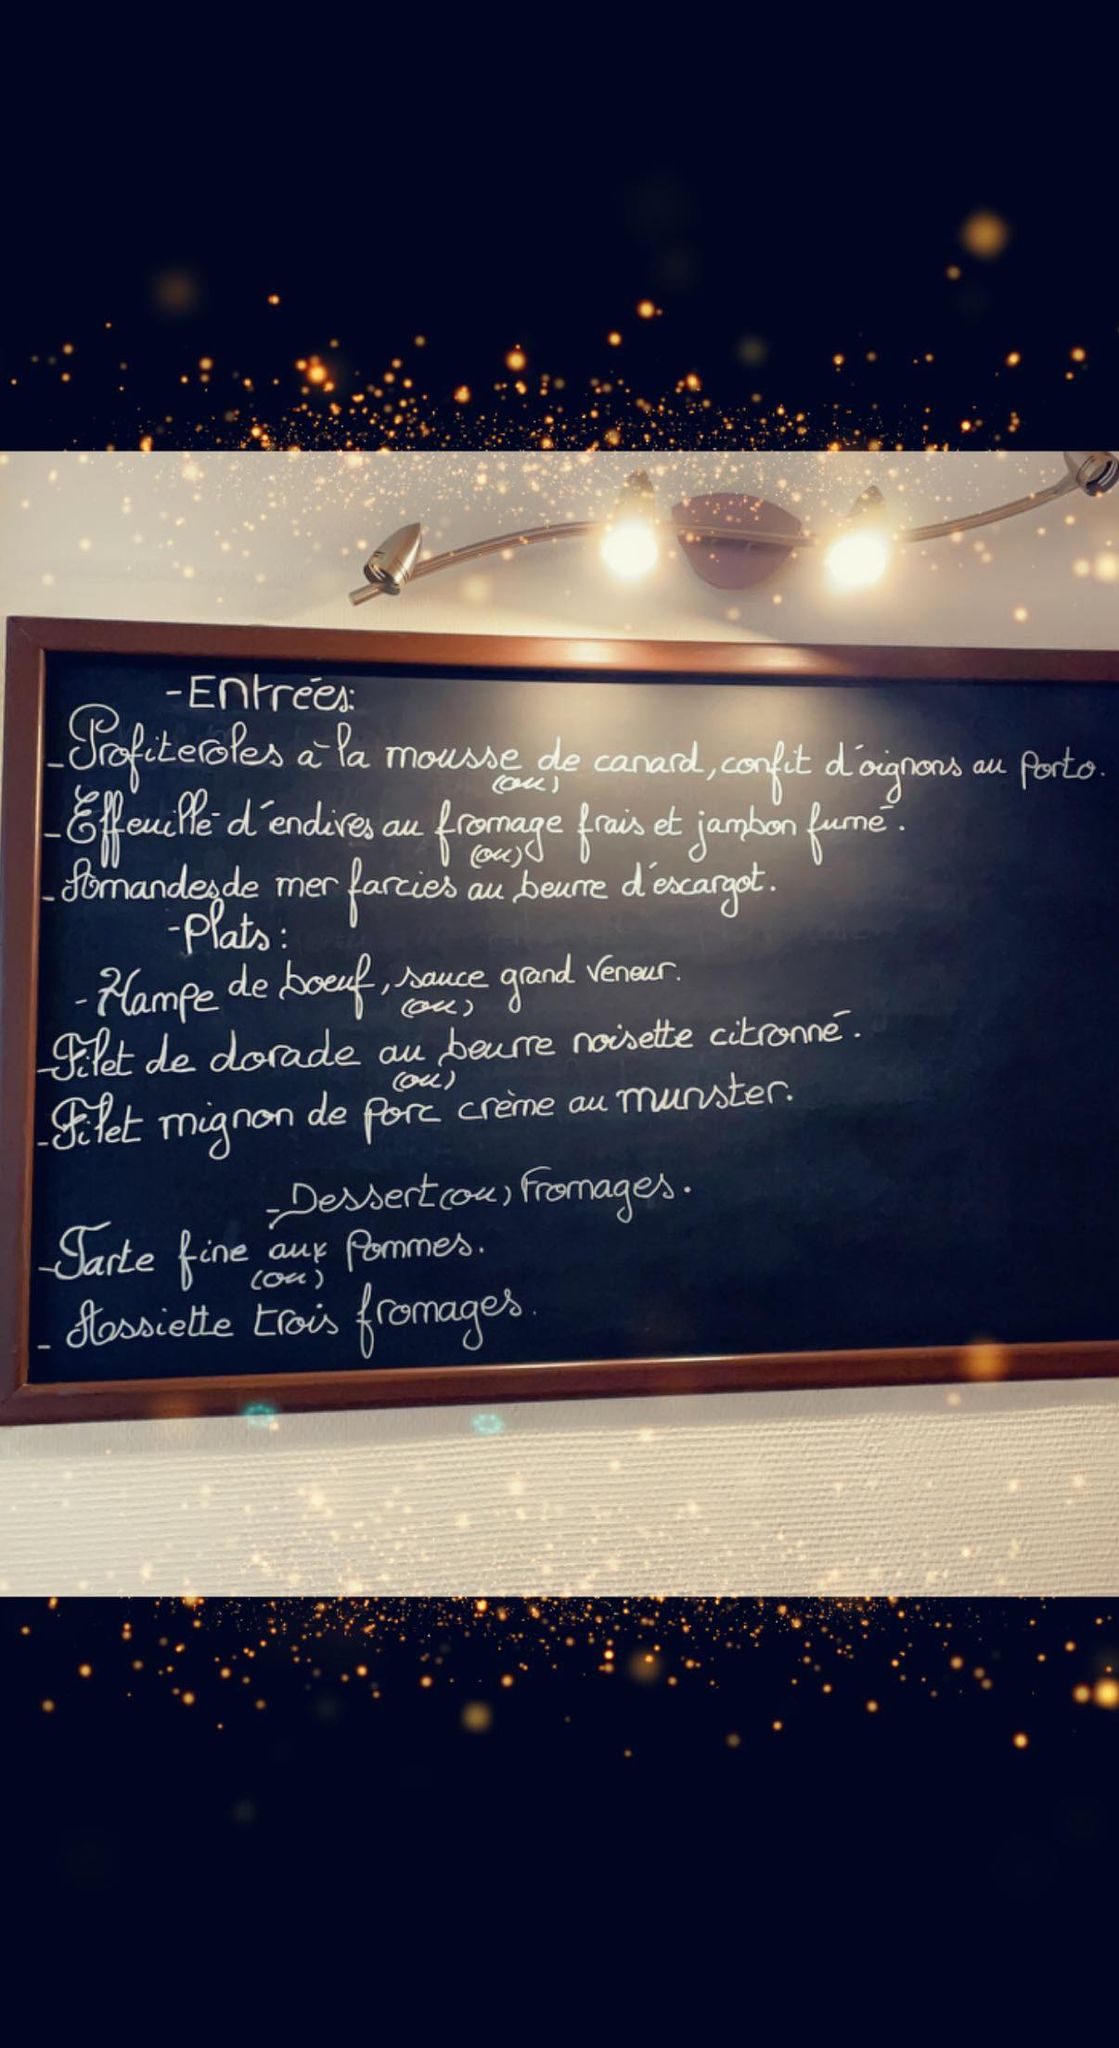 -Entrées:
-Profiteroles à la mousse de canard, confit d'oignons au Porto.
(ou)
-Effeuillé d'endives au fromage frais et jambon fumé.
(ou)
-Amandes de mer farcies au beurre d'escargot.
-Plats:
-Hampe de boeuf, sauce grand Veneur.
(ou)
-Filet de dorade au beurre noisette citronné.
(ou)
-Filet mignon de porc crème au munster.
-Dessert (ou) Fromages.
-Tarte fine aux Pommes.
(ou)
- Assiette trois fromages.